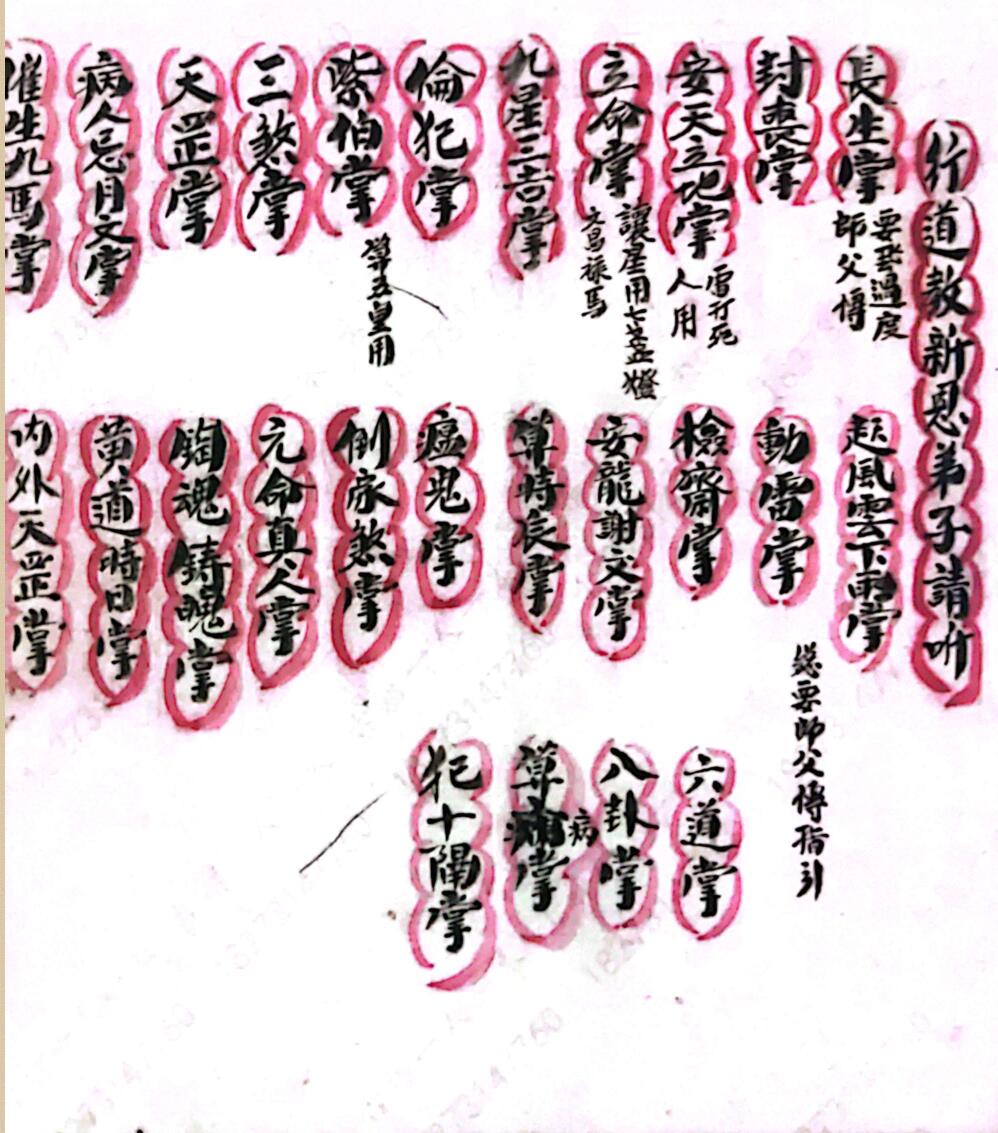 行道教新恩弟子請听
長生掌
要要過度
師父傳
封喪掌
安天立地掌
雷打死
人用
立命掌
讓星用七盞燈
文昌祿馬
九星三吉掌
倫犯掌
紫伯掌
算五皇用
三煞掌
天罡掌
病人忌月文掌
催生九馬掌
起風雲下雨掌
總要師父傳指引
動雷掌
檢齋掌
安龍謝文掌
算時辰掌
瘟鬼掌
倒家煞掌
元命真人掌
鋳魄掌
黃道時日掌
内外天罡掌
六道掌
八卦掌
算病掌
犯十隔掌